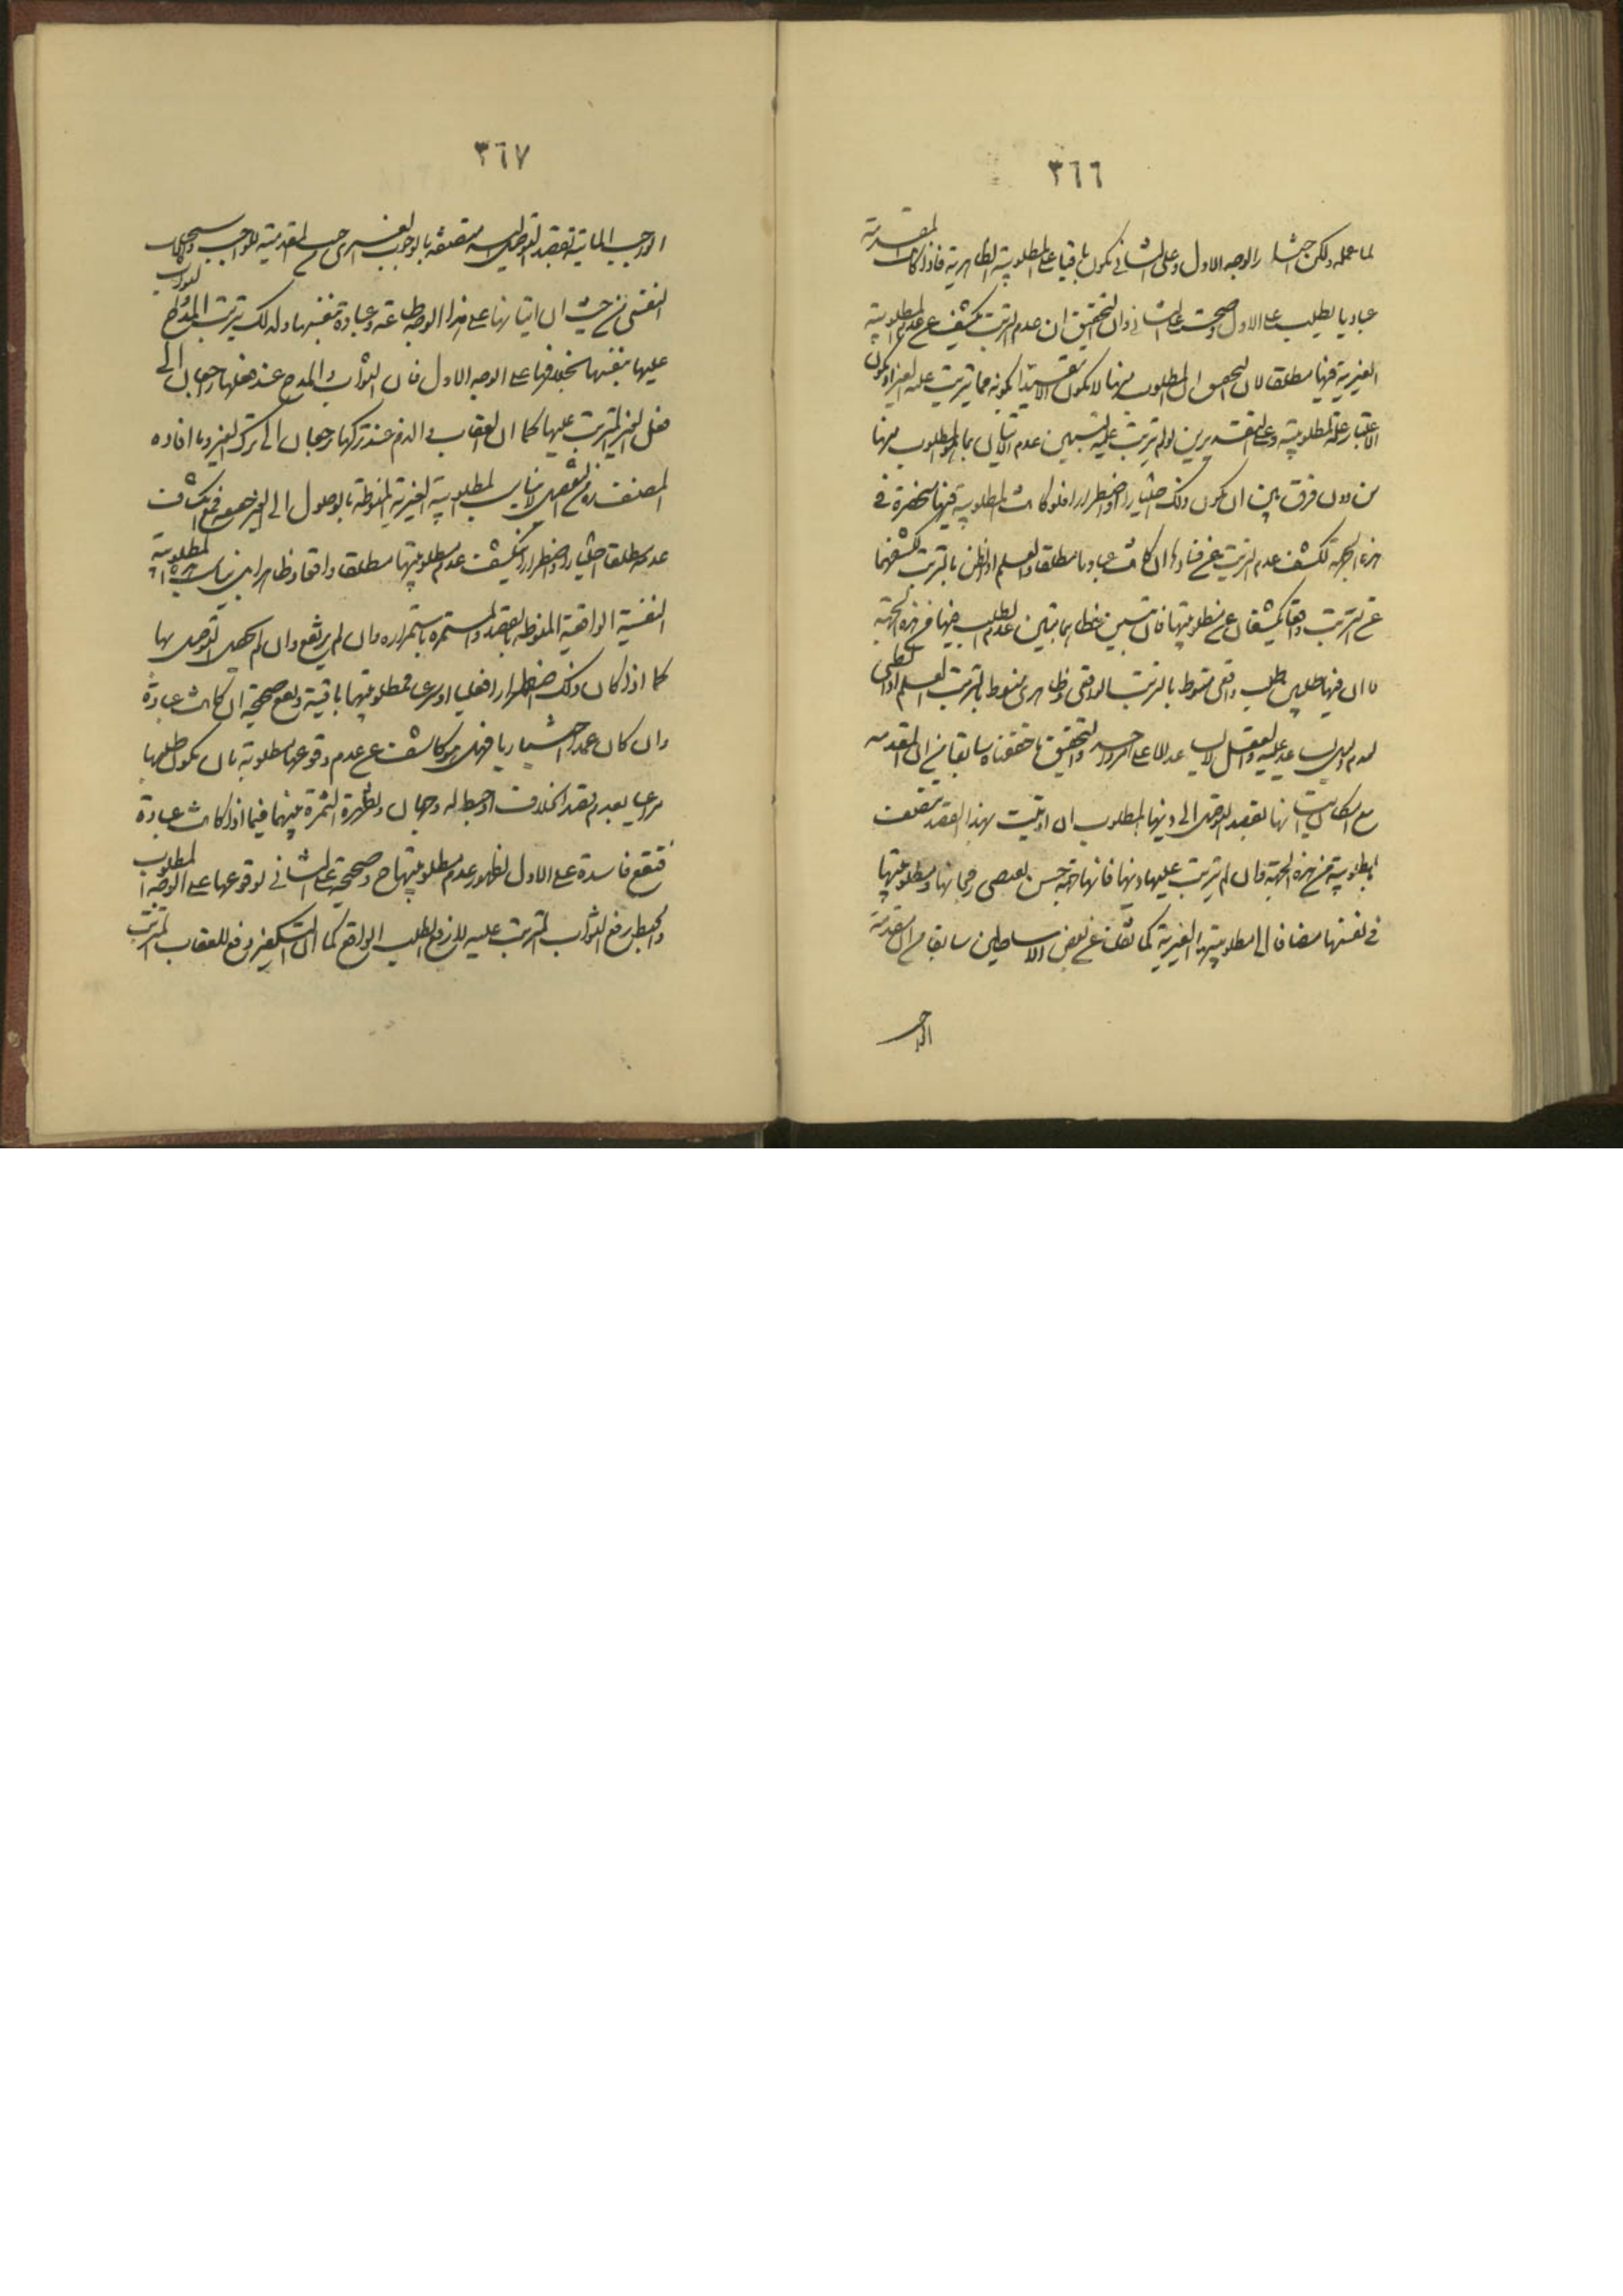 ٣٦٦
لما عمله ولكن اختيار الوجه الاول وعلى الثاني يكون باقيا على المطلوبية الظاهرية فاذا كانت المقدمة
عباديا يطلب على الاول وصحت على الثاني وان التحقيق ان عدم الترتب يكشف عن عدم المطلوبية
الغيرية فيها مطلقا لان المطلوب منها لا يكون الا مقيدا بكونه مما يترتب عليه الغير او يكون
الاعتبار علة المطلوبية وعلى التقديرين لو لم يترتب عليه تبين عدم الاتيان بما هو المطلوب منها
من دون فرق بين ان يكون ذلك اختيارا او اضطرارا فلو كانت المطلوبية فيها منحصرة في
هذه الجهة لكشف عدم الترتب عن فسادها ان كانت عبادة مطلقا والعلم او الظن بالترتب
عن الترتب واقعا يكشفان عن مطلوبيتها فان تبين خطاهما تبين عدم الطلب فيها من هذه الجهة
لا ان فيها طلبين طلب واقعي منوط بالترتب الواقعي وظاهري منوط بالترتب العلمي او الظني
لعدم عليه والعقل على والتحقيق ما حققناه سابقا من ان المقدمة
مع اتيانها بقصد التوصل الى ذيها المطلوب ان اوتيت بهذا القصد تتصف
بالمطلوبية من هذه الجهة وان لم يترتب عليها ذيها فانها جهة حسن يقتضي رجحانها ومطلوبيتها
في نفسها مضافا الى مطلوبيتها الغيرية كما نقلت عن بعض الاساطين سابقا من ان مقدمة
الواجب
٣٦٧
الواجب الماتية بقصد التوصل اليه متصفة بالوجوب الغيري من حيث المقدمية للواجب
النفسي من حيث ان اتيانها على هذا الوجه طاعة وعبادة بنفسها ولذلك يترتب المدح والثواب
عليها بنفسها بخلافها على الوجه الاول فان الثواب والمدح عند فعلها راجعان الى
فعل الغير المترتب عليها كما ان العقاب والذم عند تركها راجعان الى ترك الغير وما افاده
المصنف ره من التفصيل لا يناسب المطلوبية الغيرية المنوطة بالوصول الى الغير
عدمه مطلقا اختيارا او اضطرارا يكشف عدم مطلوبيتها مطلقا واقعا وظاهرا بل يناسب المطلوبية
النفسية الواقعية المنوطة بالقصد والمستمرة باستمراره وان لم يرتفع وان لم يحصل التوصل بها
كما اذا كان ذلك اضطرارا عقليا او شرعيا فمطلوبيتها باقية وتقع صحيحة ان كانت عبادة
وان كان عمدا اختياريا فهل هو كاشف عن عدم وقوعها مطلوبة بان يكون طلبها
مراعى بعدم قصد الخلاف او حبط له وجهان وتظهر الثمرة بينهما فيما اذا كانت عبادة
فتقع فاسدة على الاول لظهور عدم مطلوبيتها ح وصحيحة على الثاني لوقوعها على الوجه المطلوب
والحبط رفع الثواب المترتب عليه لا رفع الطلب الواقع كما ان التكفير رفع للعقاب المترتب